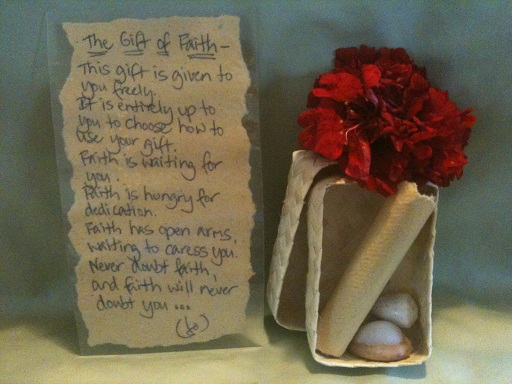 The Gift of Faith-
This gift is given to
you freely.
It is entirely up to
you to choose how to
use your gift.
Faith is waiting for
you.
Faith is hungry for
dedication.
Faith has open arms,
waiting to caress you.
Never doubt faith,
and faith will never
doubt you...